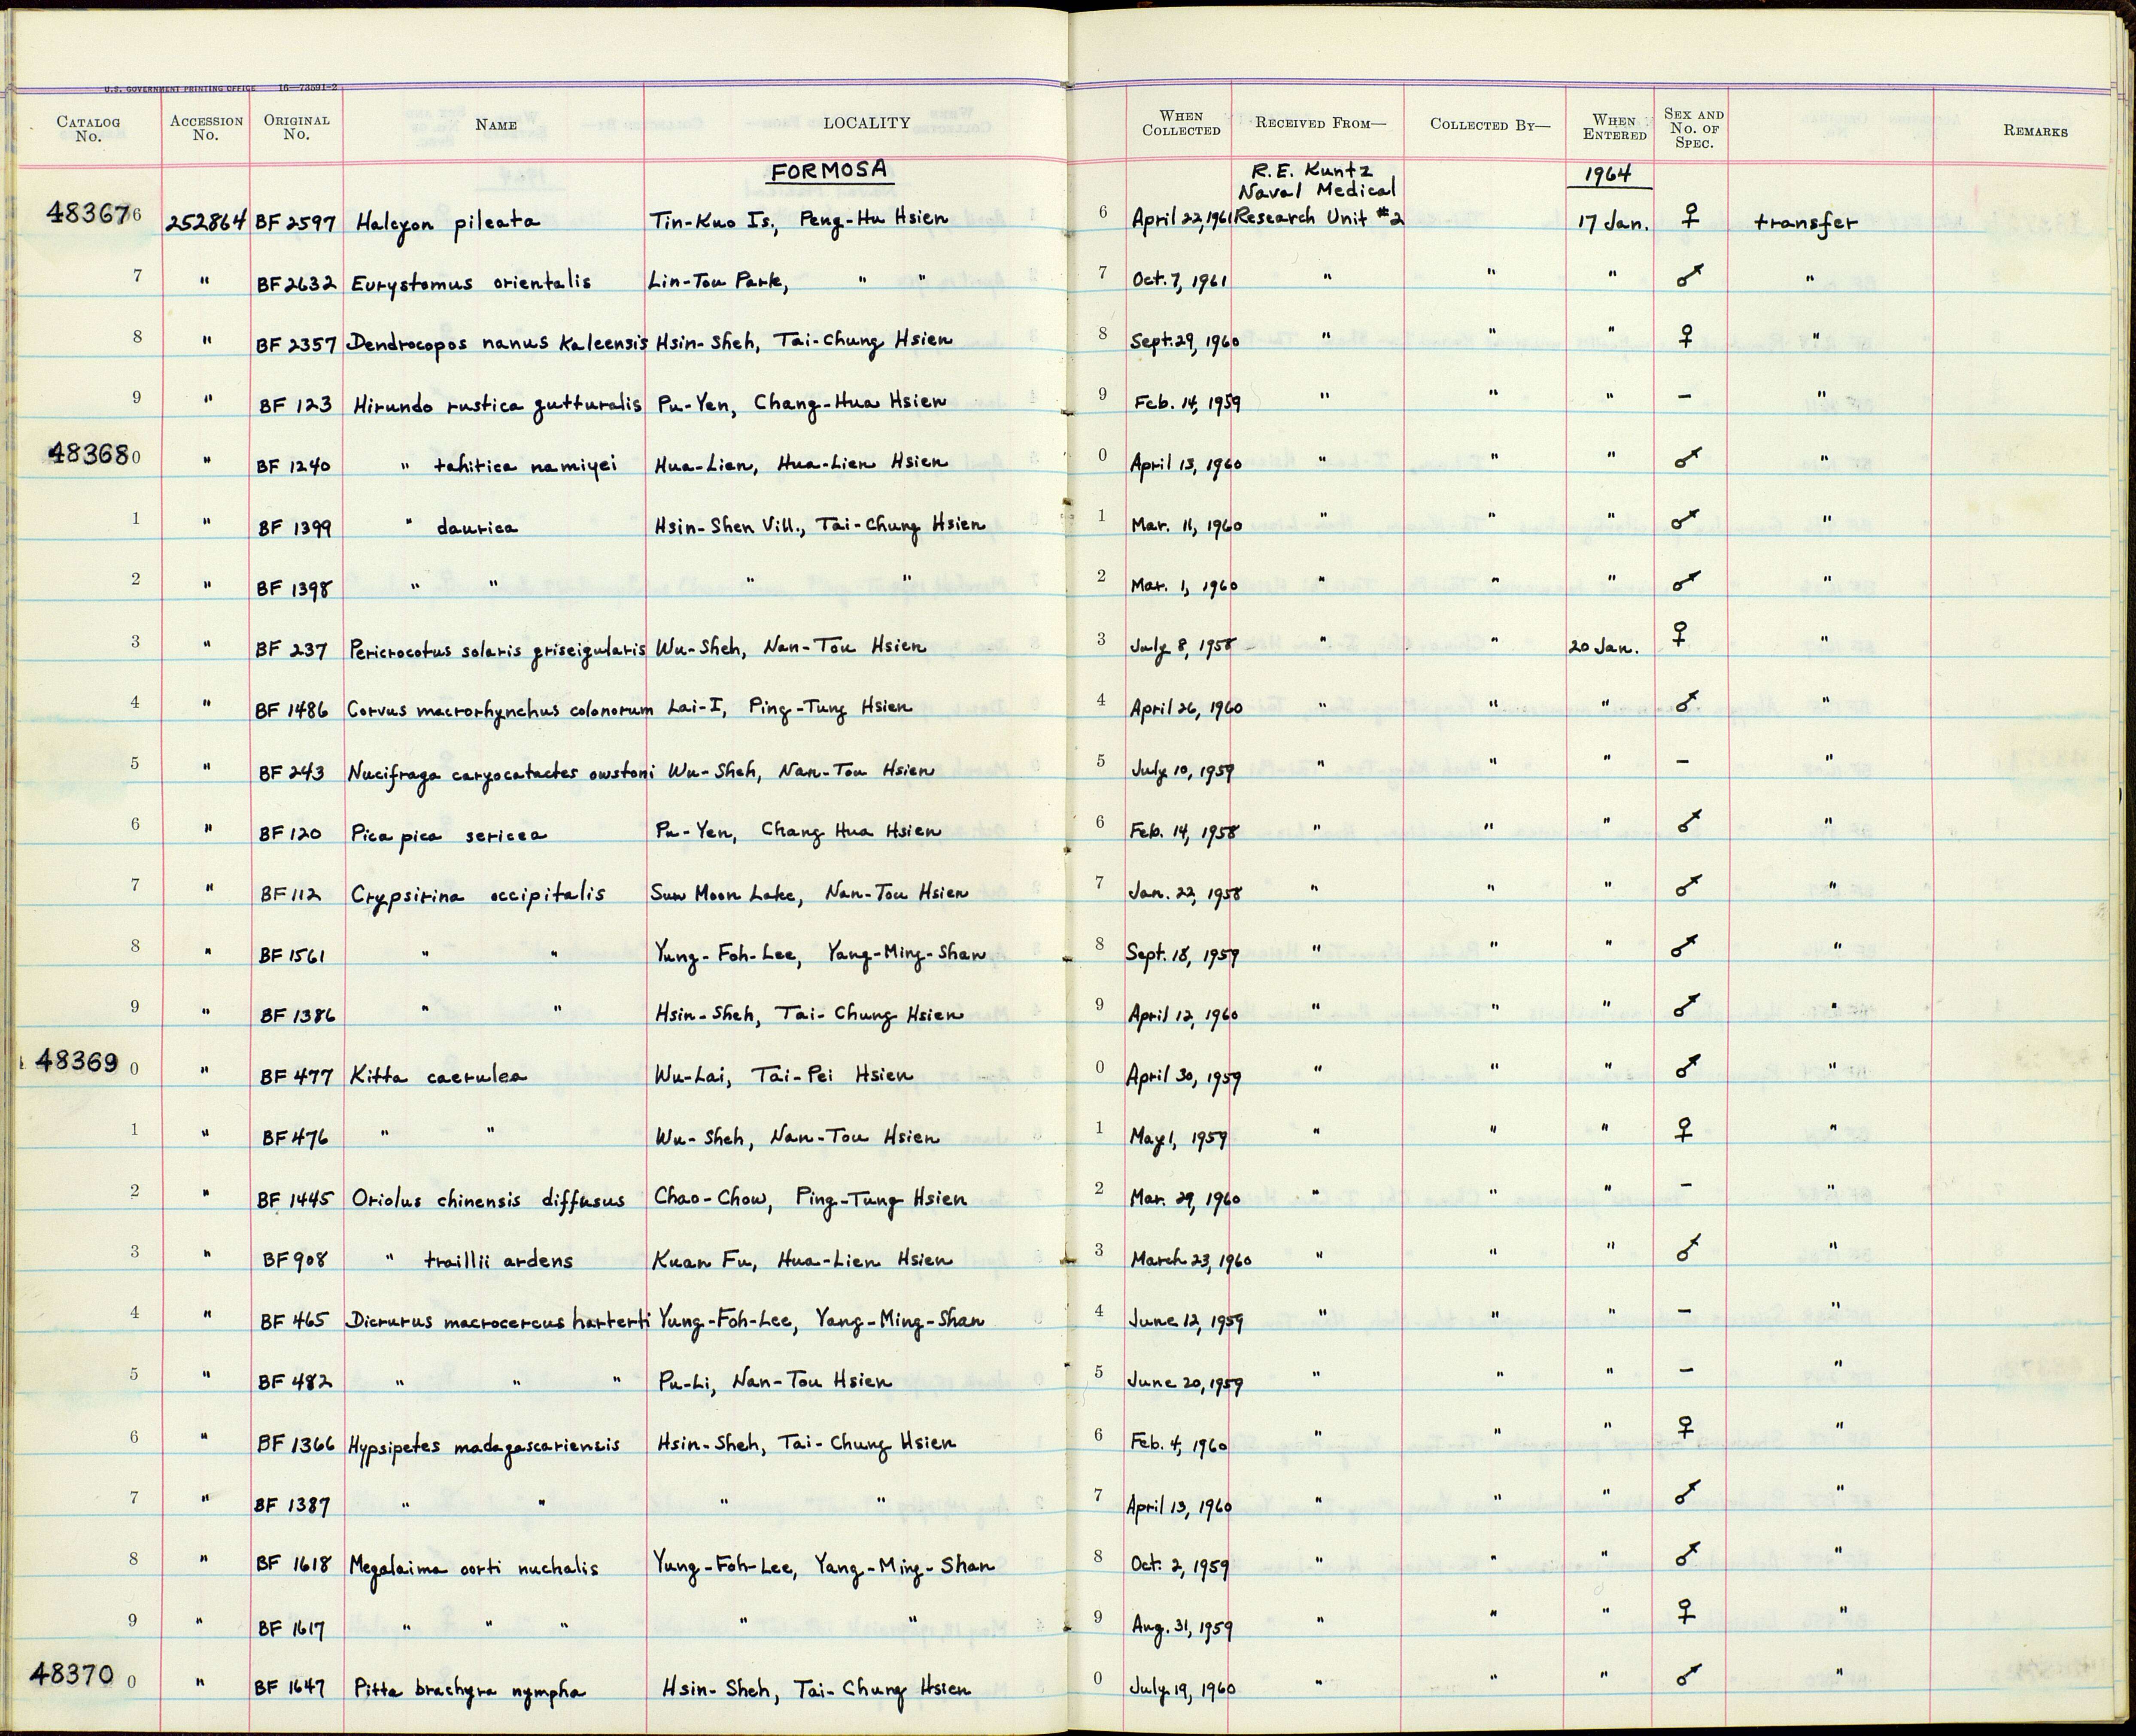 U.S. GOVERNMENT PRINTING OFFICE 16—73591-2
CATALOG No. ACCESSION No. ORIGINAL No. NAME LOCALITY WHEN COLLECTED RECEIVED FROM— COLLECTED BY— WHEN ENTERED SEX AND No. OF SPEC. REMARKS
FORMOSA R.E. Kuntz 1964
Naval Medical
483676 252864 BF 2597 Halcyon pileata Tin-Kuo Is., Peng-Hu Hsien 6 April 22, 1961 Research Unit #2 17 Jan. ♀ transfer
7 " BF 2632 Eurystomus orientalis Lin-Tou Park, " " 7 Oct. 7, 1961 " " " ♂ "
8 " BF 2357 Dendrocopos nanus kaleensis Hsin-Sheh, Tai-Chung Hsien 8 Sept. 29, 1960 " " " ♀ "
9 " BF 123 Hirundo rustica gutturalis Pu-Yen, Chang-Hua Hsien 9 Feb. 14, 1959 " " " – "
483680 " BF 1240 " tahitica namiyei Hua-Lien, Hua-Lien Hsien 0 April 13, 1960 " " " ♂ "
1 " BF 1399 " daurica Hsin-Shen Vill., Tai-Chung Hsien 1 Mar. 11, 1960 " " " ♂ "
2 " BF 1398 " " " " 2 Mar. 1, 1960 " " " ♂ "
3 " BF 237 Pericrocotus solaris griseigularis Wu-Sheh, Nan-Tou Hsien 3 July 8, 1958 " " 20 Jan. ♀ "
4 " BF 1486 Corvus macrorhynchus colonorum Lai-I, Ping-Tung Hsien 4 April 26, 1960 " " " ♂ "
5 " BF 243 Nucifraga caryocatactes owstoni Wu-Sheh, Nan-Tou Hsien 5 July 10, 1959 " " " – "
6 " BF 120 Pica pica sericea Pu-Yen, Chang Hua Hsien 6 Feb. 14, 1958 " " " ♂ "
7 " BF 112 Crypsirina occipitalis Sun Moon Lake, Nan-Tou Hsien 7 Jan. 22, 1958 " " " ♂ "
8 " BF 1561 " " Yung-Foh-Lee, Yang-Ming-Shan 8 Sept. 18, 1959 " " " ♂ "
9 " BF 1386 " " Hsin-Sheh, Tai-Chung Hsien 9 April 12, 1960 " " " ♂ "
483690 " BF 477 Kitta caerulea Wu-Lai, Tai-Pei Hsien 0 April 30, 1959 " " " ♂ "
1 " BF 476 " " Wu-Sheh, Nan-Tou Hsien 1 May 1, 1959 " " " ♀ "
2 " BF 1445 Oriolus chinensis diffusus Chao-Chow, Ping-Tung Hsien 2 Mar. 29, 1960 " " " – "
3 " BF 908 " traillii ardens Kuan Fu, Hua-Lien Hsien 3 March 23, 1960 " " " ♂ "
4 " BF 465 Dicrurus macrocercus harterti Yung-Foh-Lee, Yang-Ming-Shan 4 June 12, 1959 " " " – "
5 " BF 482 " " " Pu-Li, Nan-Tou Hsien 5 June 20, 1959 " " " – "
6 " BF 1366 Hypsipetes madagascariensis Hsin-Sheh, Tai-Chung Hsien 6 Feb. 4, 1960 " " " ♀ "
7 " BF 1387 " " " " 7 April 13, 1960 " " " ♂ "
8 " BF 1618 Megalaima oorti nuchalis Yung-Foh-Lee, Yang-Ming-Shan 8 Oct. 2, 1959 " " " ♂ "
9 " BF 1617 " " " " " 9 Aug. 31, 1959 " " " ♀ "
483700 " BF 1647 Pitta brachyra nympha Hsin-Sheh, Tai-Chung Hsien 0 July 19, 1960 " " " ♂ "